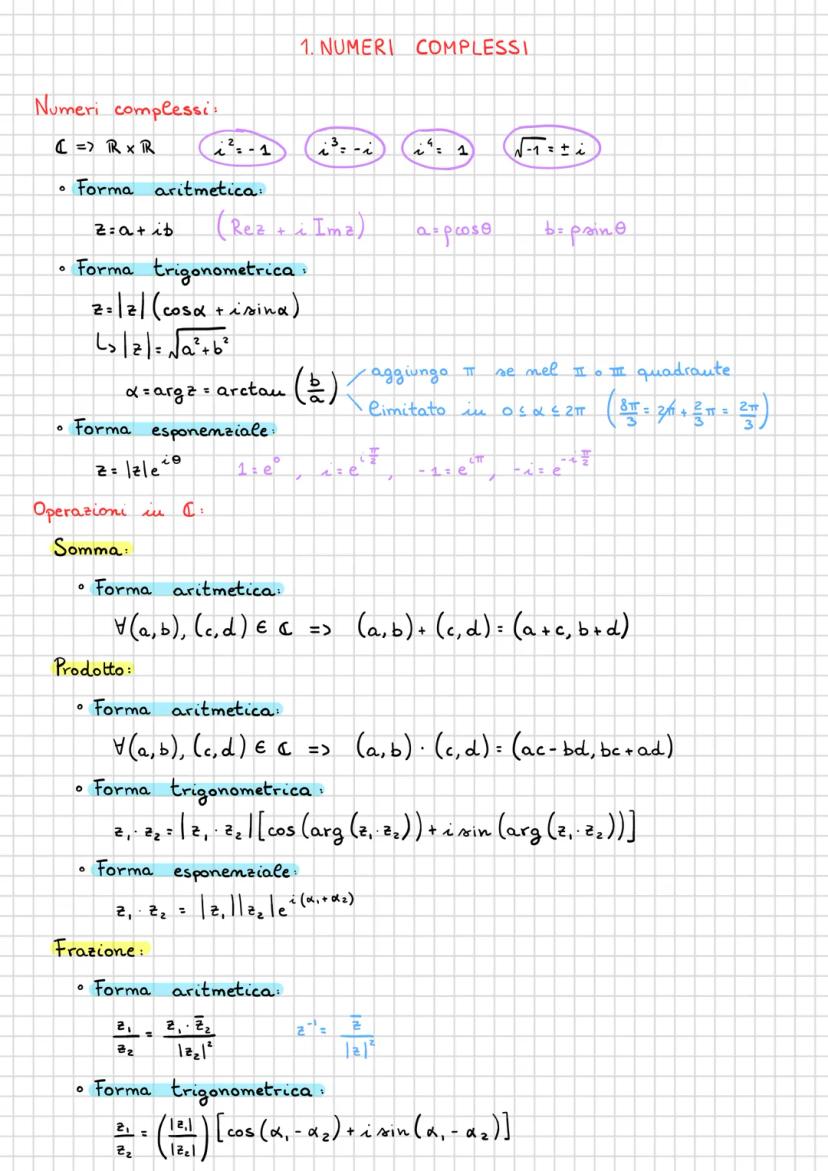 1. NUMERI COMPLESSI
Numeri complessi:
ℂ => ℝ x ℝ   i² = -1   i³ = -i   i⁴ = 1   √-1 = ± i
• Forma aritmetica:
z = a + ib   (Rez + i Imz)   a = ρcosθ   b = ρsinθ
• Forma trigonometrica:
z = |z| (cosα + i sinα)
↳ |z| = √a² + b²
α = arg z = arctan (b/a)   aggiungo π se nel II o III quadrante
limitato in 0 ≤ α ≤ 2π   (8π/3 = 2π + 2/3 π = 2π/3)
• Forma esponenziale:
z = |z|e^iθ   1 = e⁰ , i = e^iπ/2 , -1 = e^iπ , -i = e^-iπ/2
Operazioni in ℂ:
Somma:
• Forma aritmetica:
∀(a,b), (c,d) ∈ ℂ => (a,b) + (c,d) = (a+c, b+d)
Prodotto:
• Forma aritmetica:
∀(a,b), (c,d) ∈ ℂ => (a,b) · (c,d) = (ac - bd, bc + ad)
• Forma trigonometrica:
z₁ · z₂ = |z₁ · z₂| [cos (arg (z₁ · z₂)) + i sin (arg (z₁ · z₂))]
• Forma esponenziale:
z₁ · z₂ = |z₁||z₂|e^i(α₁+α₂)
Frazione:
• Forma aritmetica:
z₁/z₂ = z₁ · z̄₂/|z₂|²   z⁻¹ = z̄/|z|²
• Forma trigonometrica:
z₁/z₂ = (|z₁|/|z₂|) [cos (α₁ - α₂) + i sin (α₁ - α₂)]